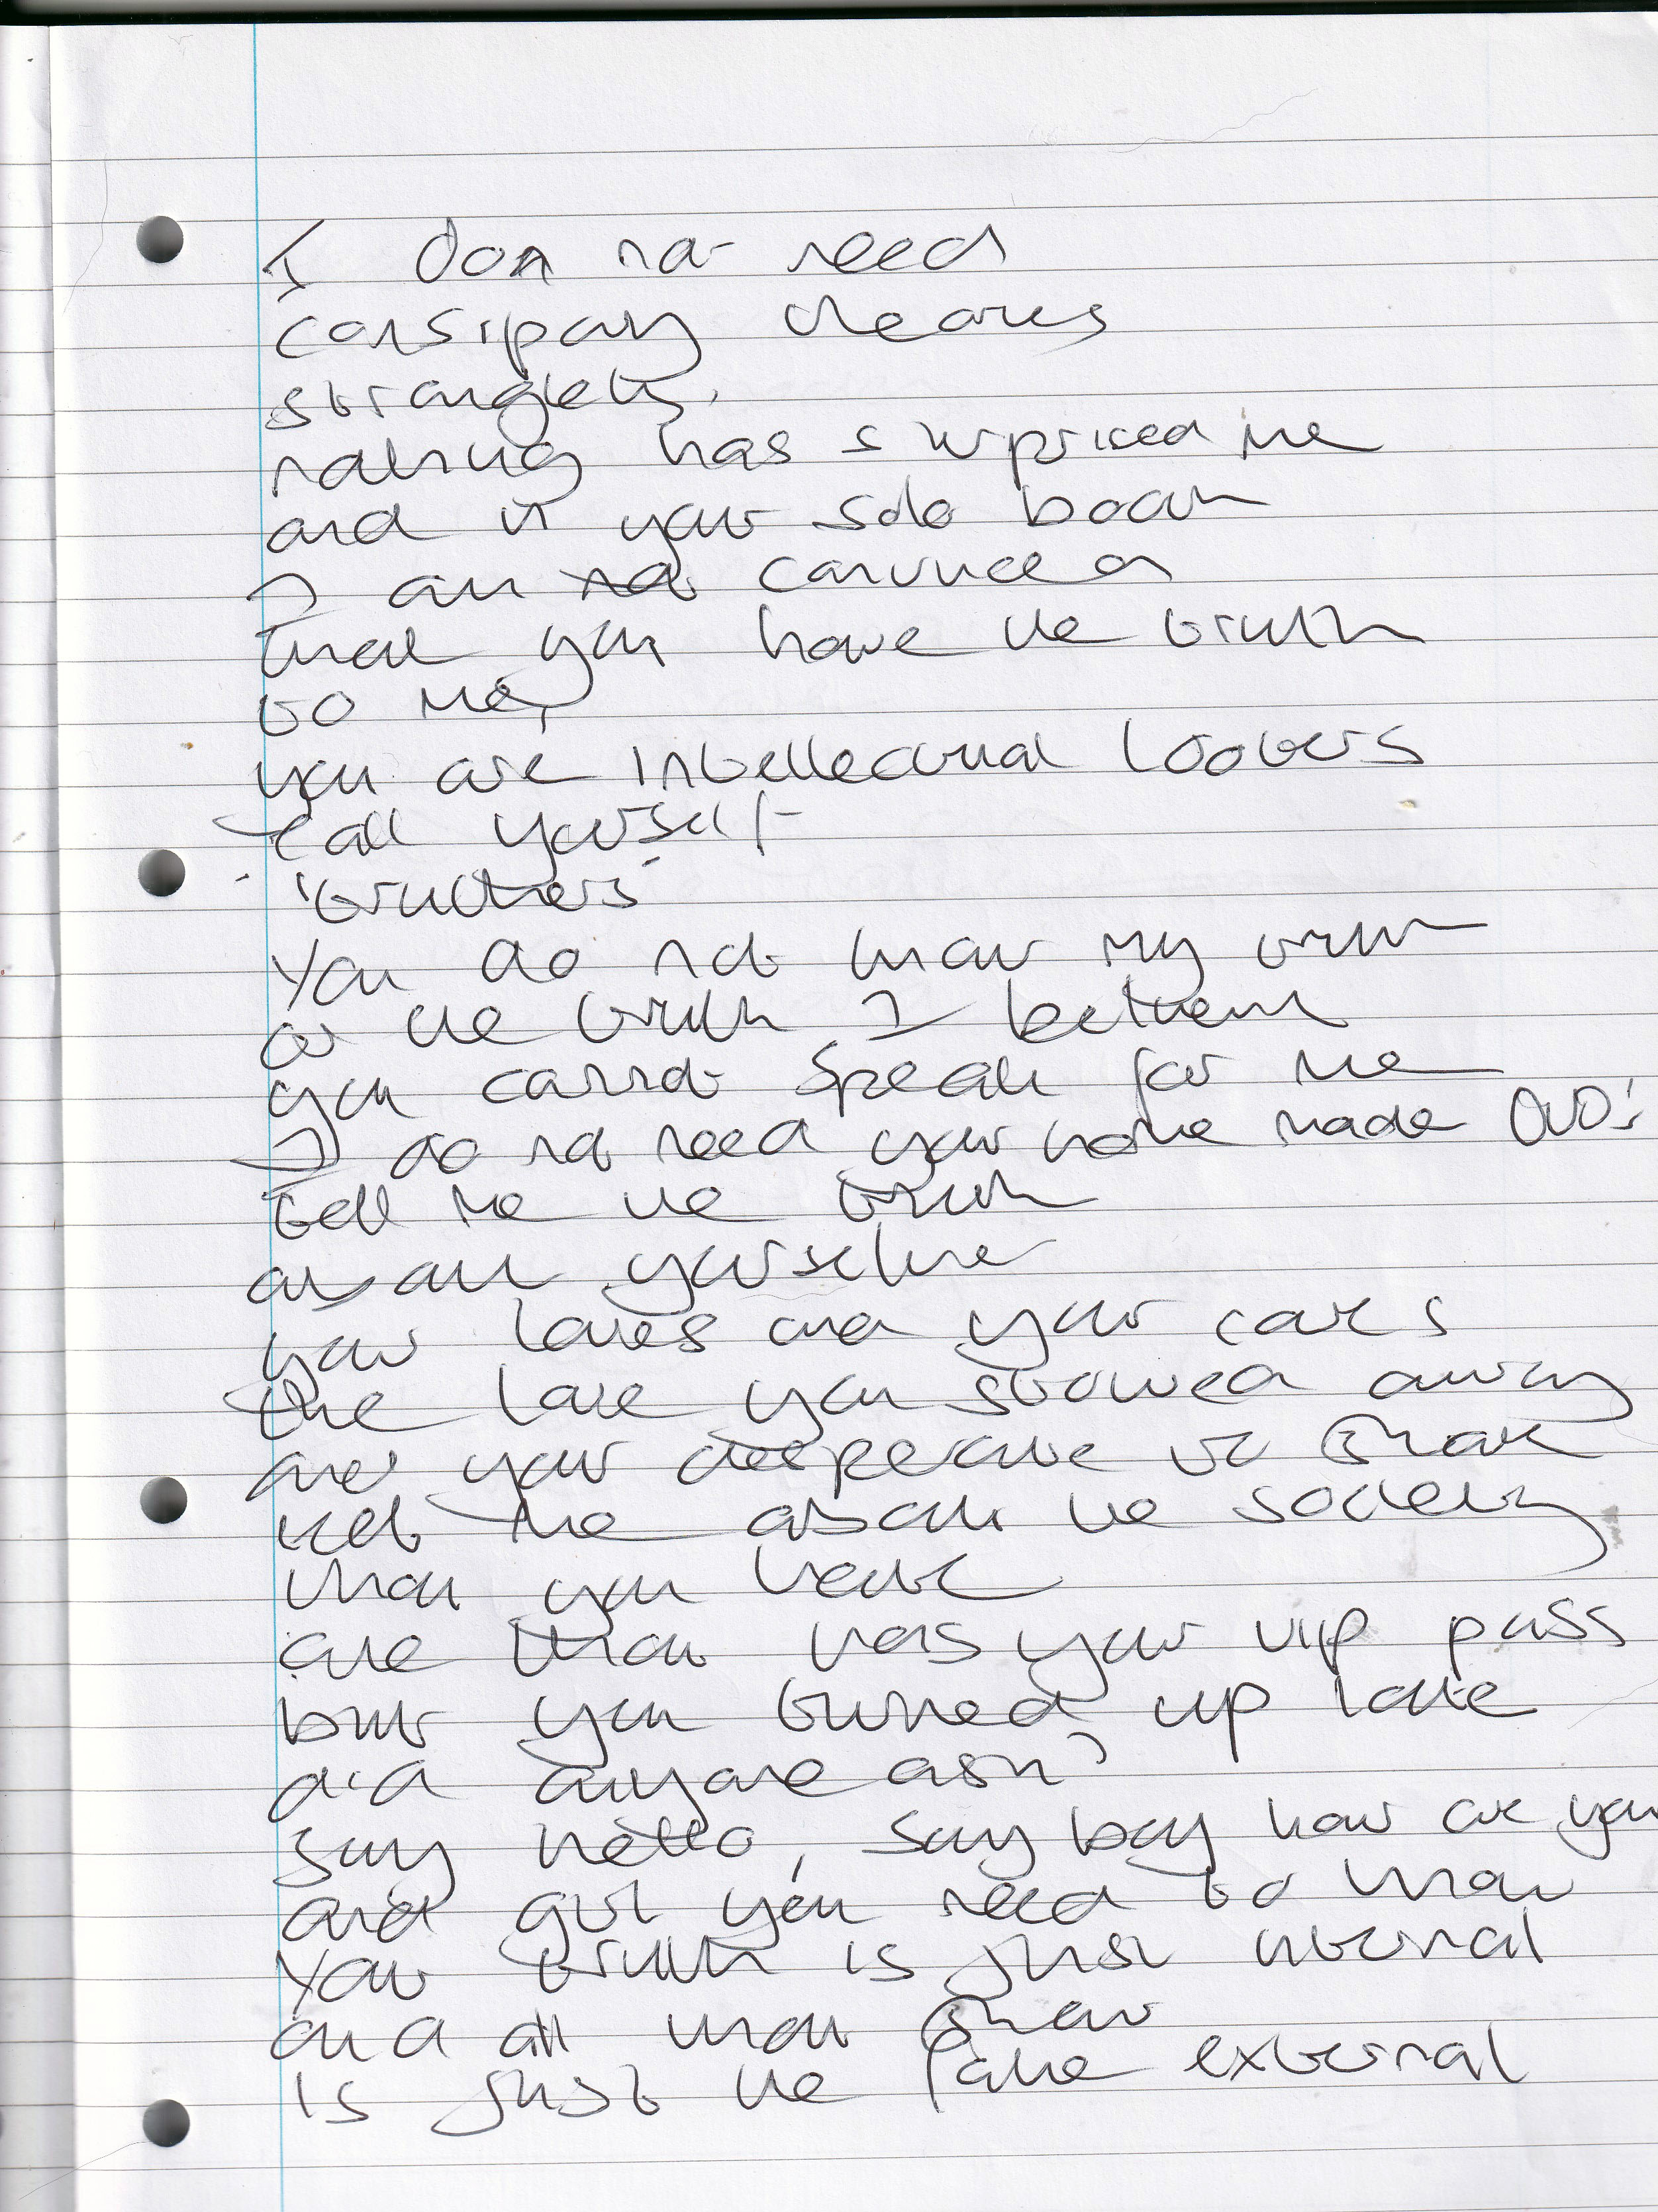 I don not need
consipary theories
strangley,
nothing has surprised me
and it your solo book
I am not convinced
that you have the truth
to me,
you are intellectual looters
call yourself
'truthers'
You do not know my truth
or the truth I
you cannot speak for me
I do not need your home made DVD's
tell me the truth
about yourselve
your loves and your cares
the love you stowed away
and your desperate to
not the about the society
that you
and that was your vip pass
but you turned up late
did anyone ask?
say hello, say boy how are you
and girl you need to know
Your truth is just internal
and all that
is just the fake external